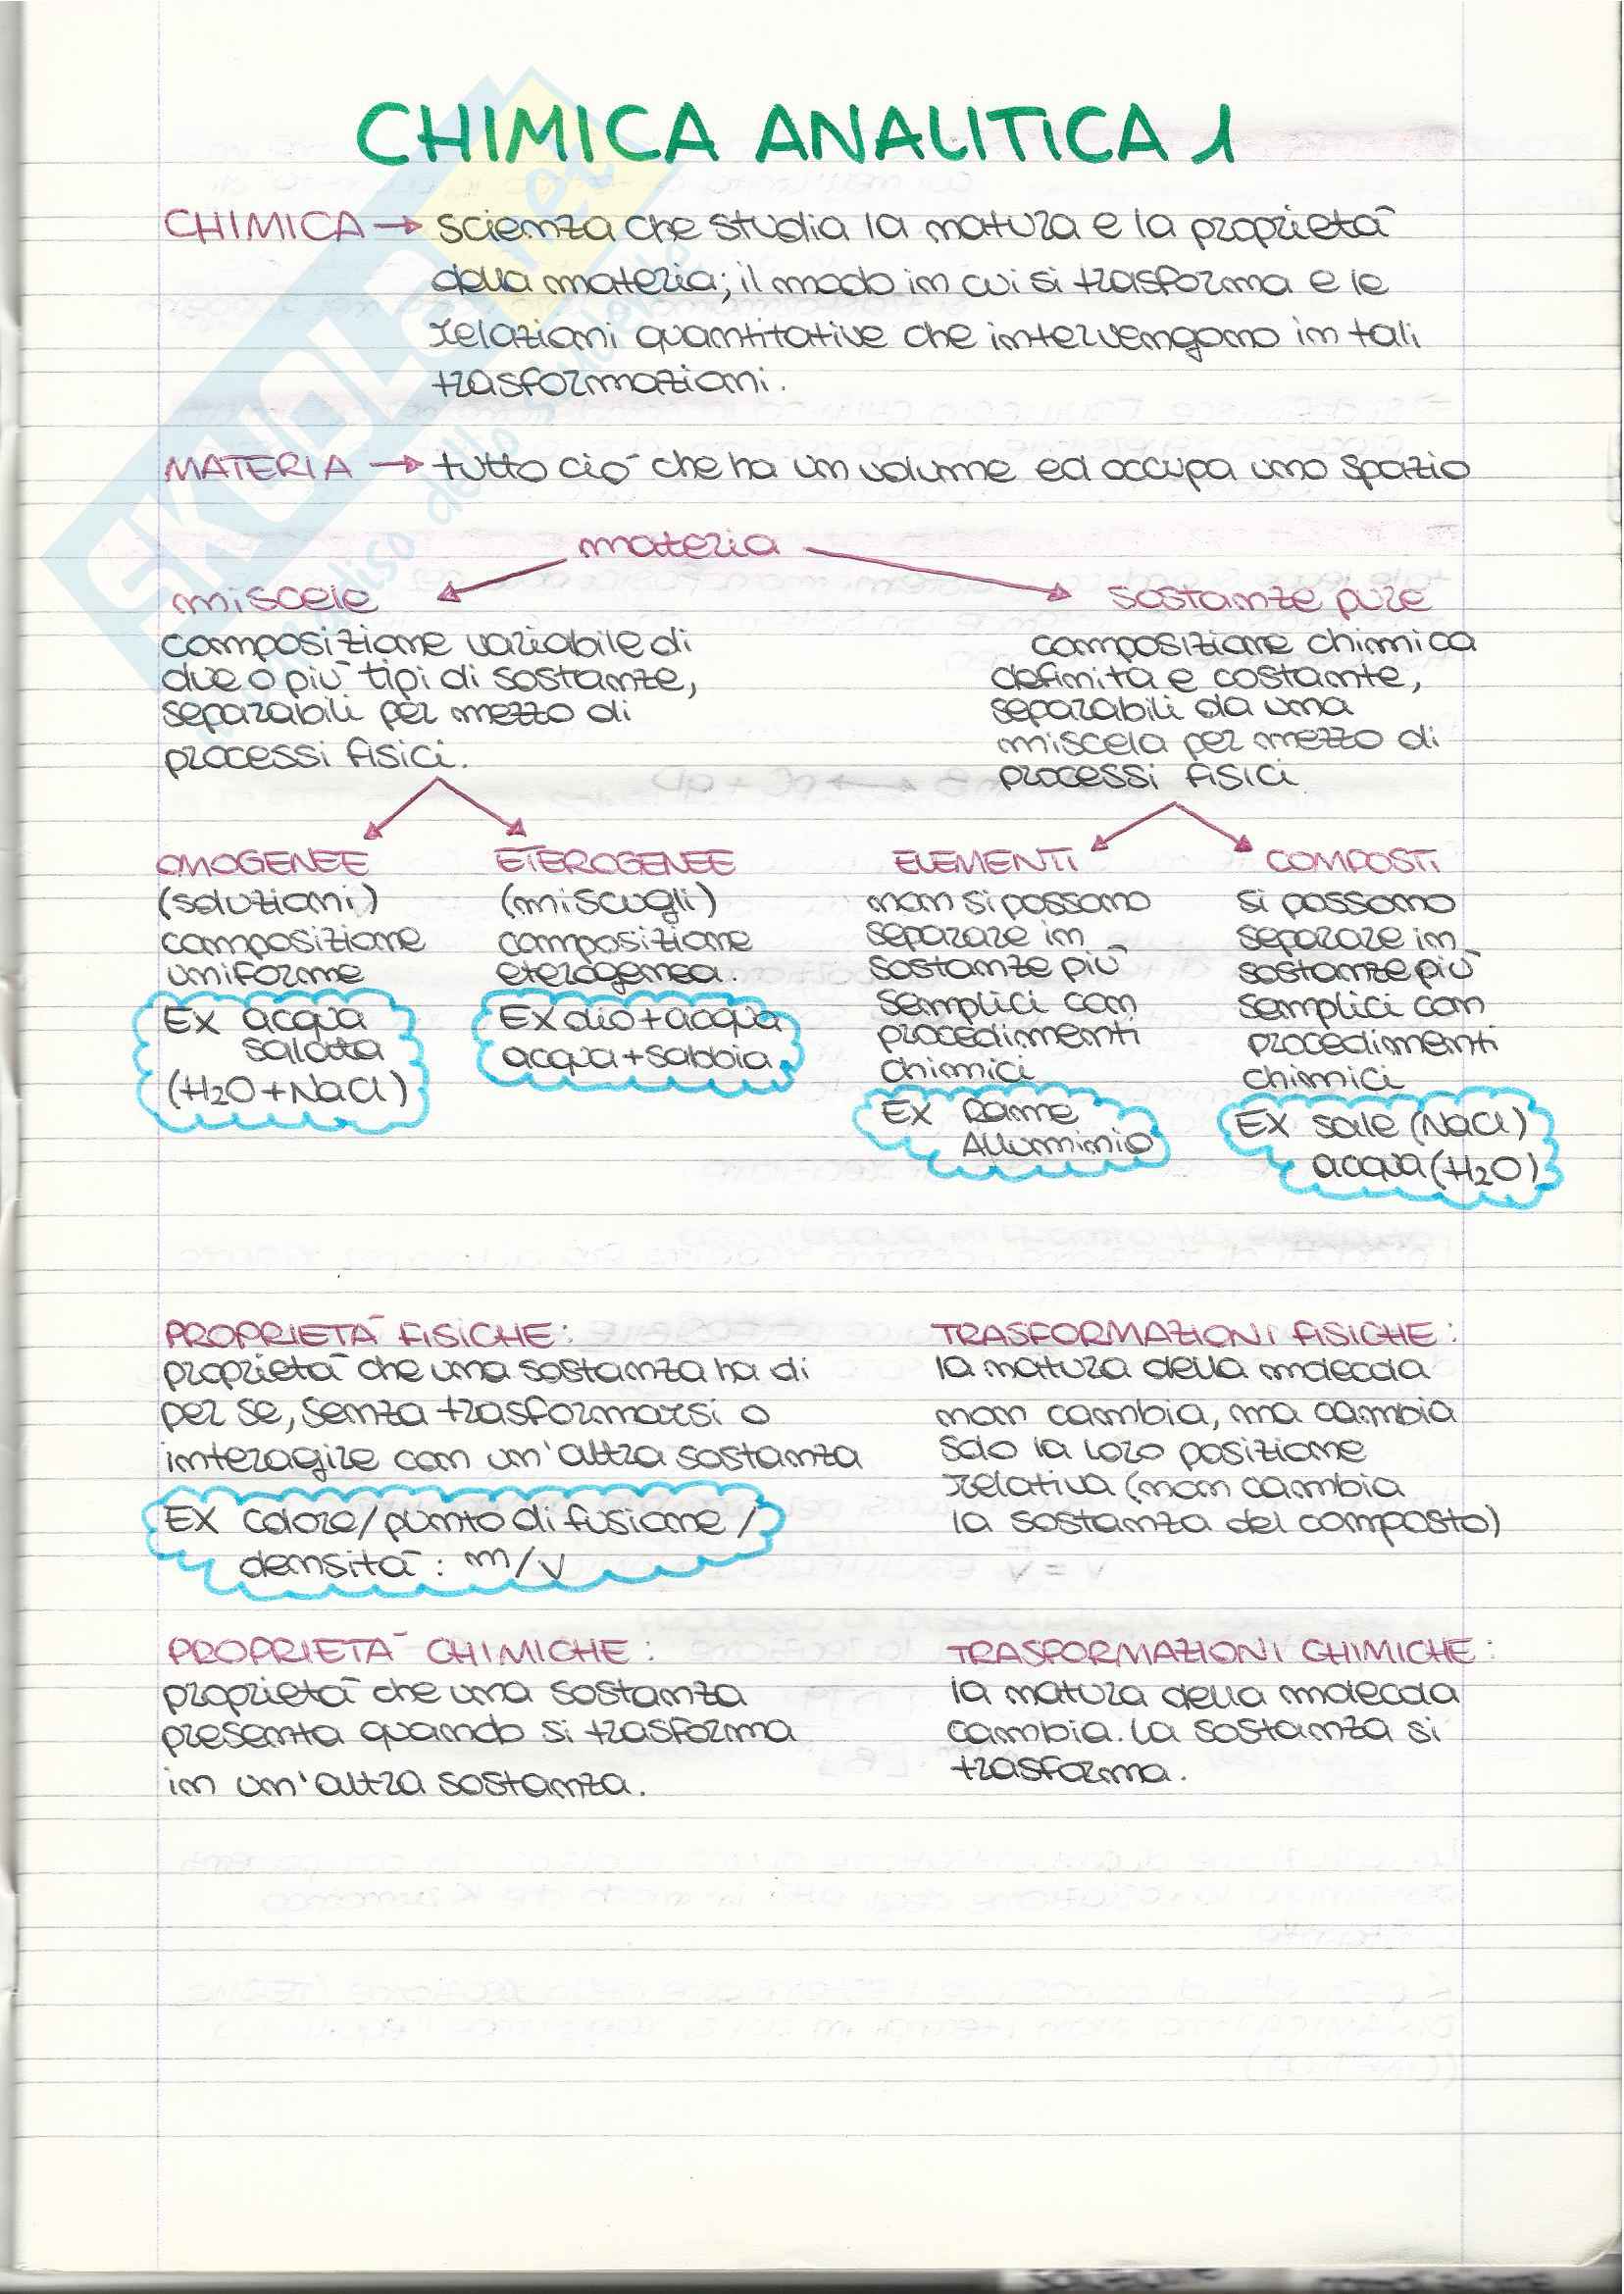 CHIMICA ANALITICA 1
CHIMICA → scienza che studia la natura e la proprietà
della materia; il modo in cui si trasforma e le
relazioni quantitative che intervengono in tali
trasformazioni.
MATERIA → tutto ciò che ha un volume ed occupa uno spazio
materia
miscele
composizione variabile di
due o più tipi di sostanze,
separabili per mezzo di
processi fisici.
sostanze pure
composizione chimica
definita e costante,
separabili da una
miscela per mezzo di
processi fisici
OMOGENEE
(soluzioni)
composizione
uniforme
Ex acqua
salata
(H₂O + NaCl)
ETEROGENEE
(miscugli)
composizione
eterogenea.
Ex olio + acqua
acqua + sabbia
ELEMENTI
non si possono
separare in
sostanze più
semplici con
procedimenti
chimici
Ex Rame
Alluminio
COMPOSTI
si possono
separare in
sostanze più
semplici con
procedimenti
chimici
Ex sale (NaCl)
acqua (H₂O)
PROPRIETÀ FISICHE:
proprietà che una sostanza ha di
per se, senza trasformarsi o
interagire con un'altra sostanza
Ex colore / punto di fusione /
densità : m/v
TRASFORMAZIONI FISICHE:
la natura della molecola
non cambia, ma cambia
solo la loro posizione
relativa (non cambia
la sostanza del composto)
PROPRIETÀ CHIMICHE:
proprietà che una sostanza
presenta quando si trasforma
in un'altra sostanza.
TRASFORMAZIONI CHIMICHE:
la natura della molecola
cambia. La sostanza si
trasforma.